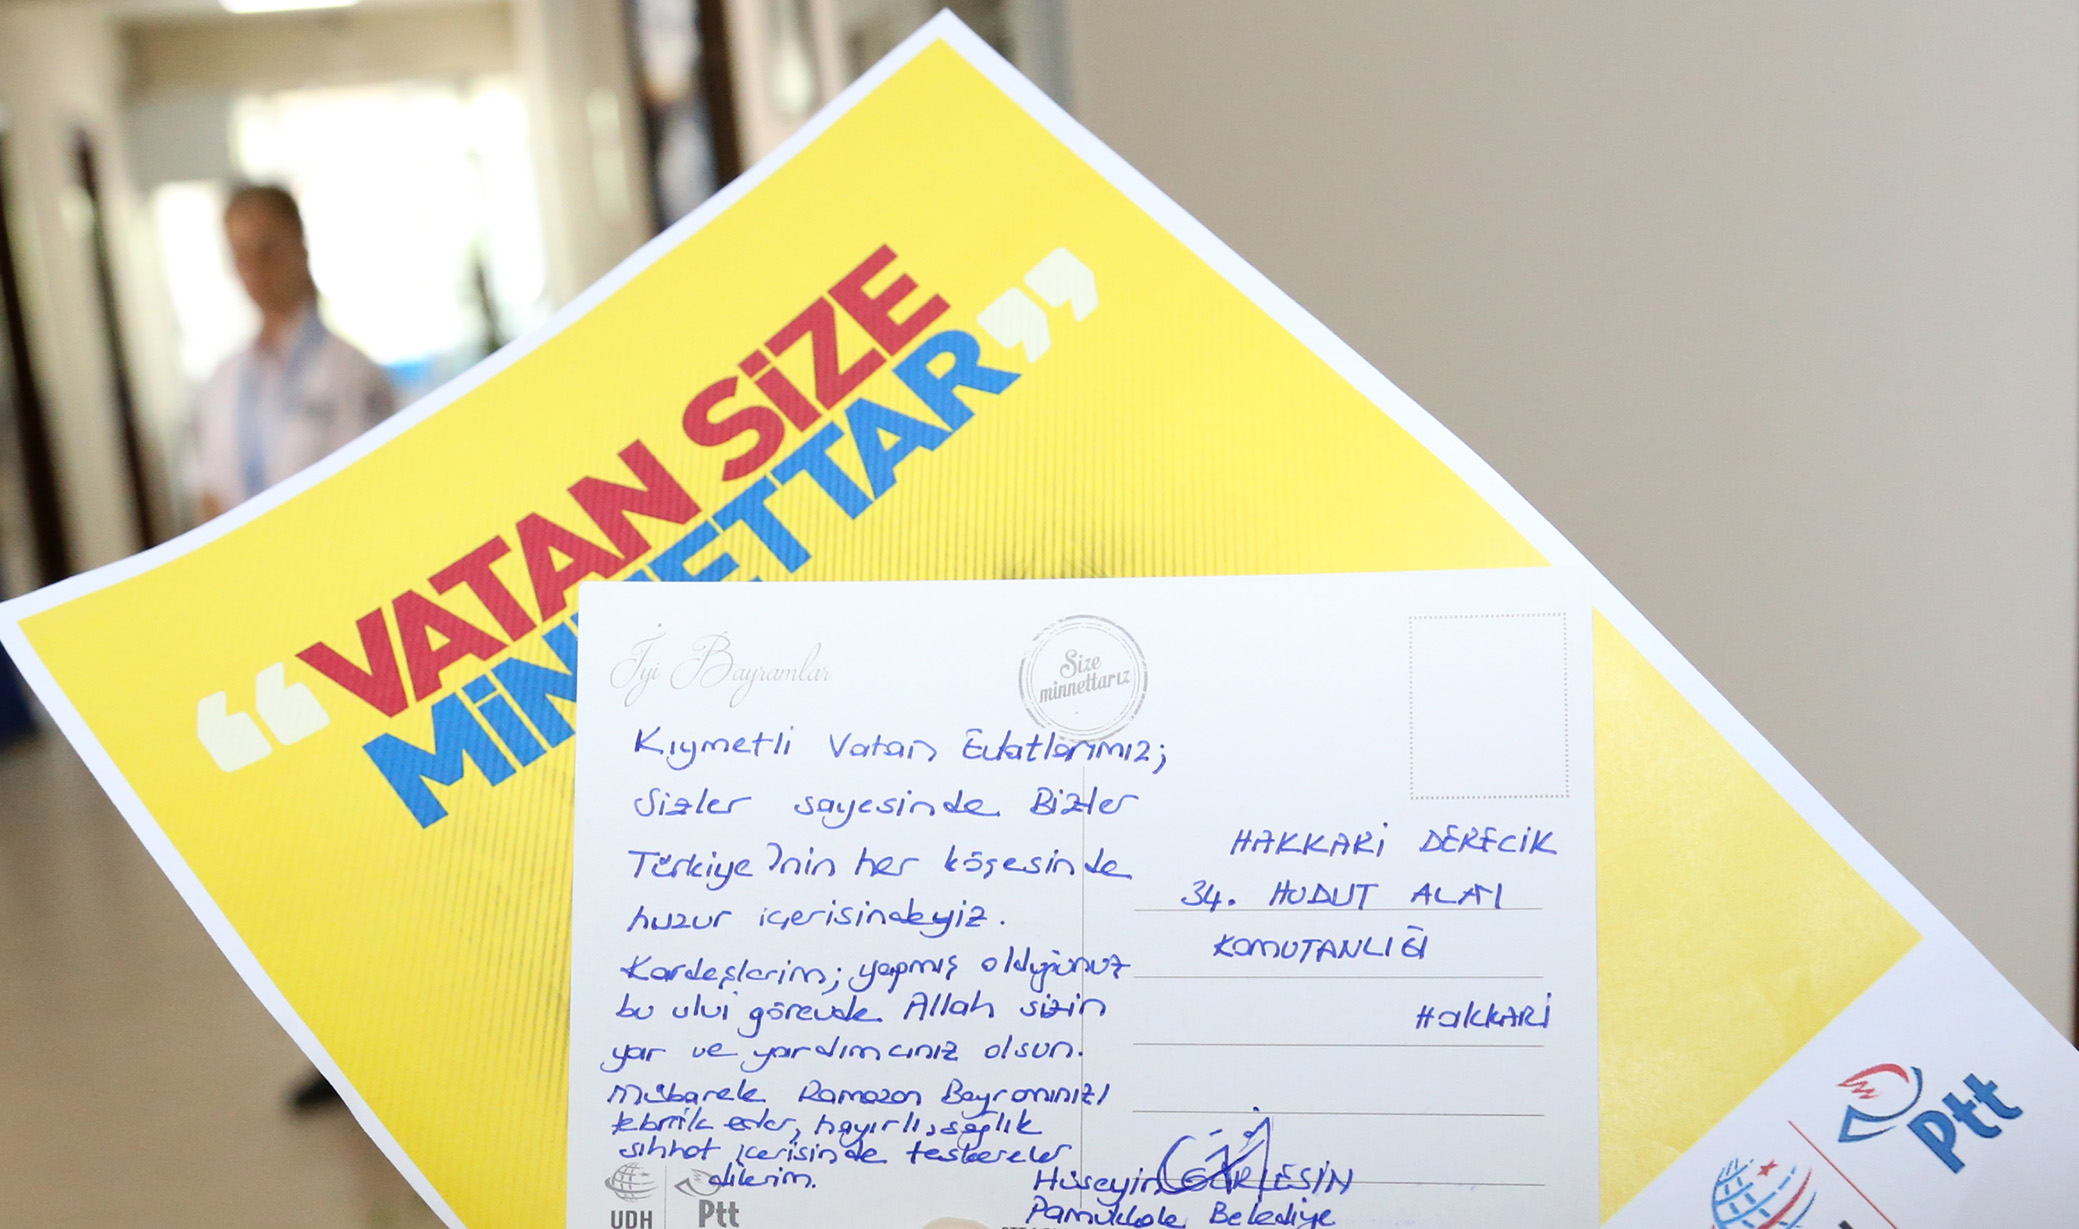 “VATAN SİZE
MİNNETTAR”
İyi Bayramlar
Size
minnettarız
Kıymetli Vatan Evlatlarımız;
Sizler sayesinde Bizler
Türkiye'nin her köşesinde
huzur içerisindeyiz.
Kardeşlerim; yapmış olduğunuz
bu ulvi görevde Allah sizin
yar ve yardımcınız olsun.
Mübarek Ramazan Bayramınızı
tebrik eder, hayırlı, sağlık
sıhhat içerisinde teskereler
dilerim.
HAKKARİ DERECİK
34. HUDUT ALAYI
KOMUTANLIĞI
HakKARİ
Hüseyin GÜRLESİN
Pamukkale Belediye
UDH
Ptt
Ptt